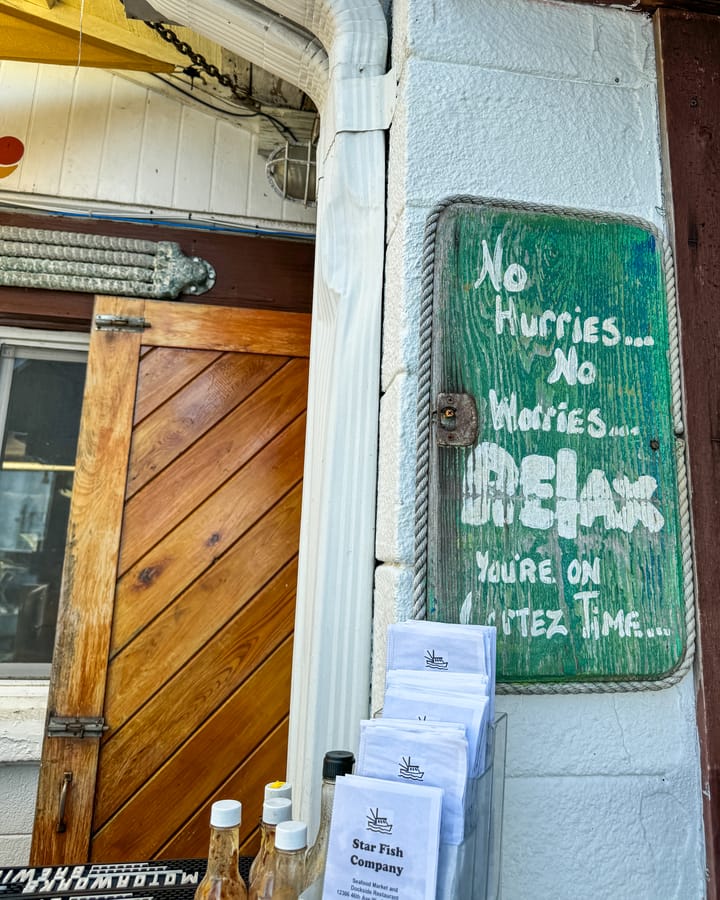 No
Hurries...
No
Worries...
RELAX
YOU'RE ON
CORTEZ TIME...
Star Fish
Company
Seafood Market and
Dockside Restaurant
12306 46th Ave
MOTORWORKS
BREWING